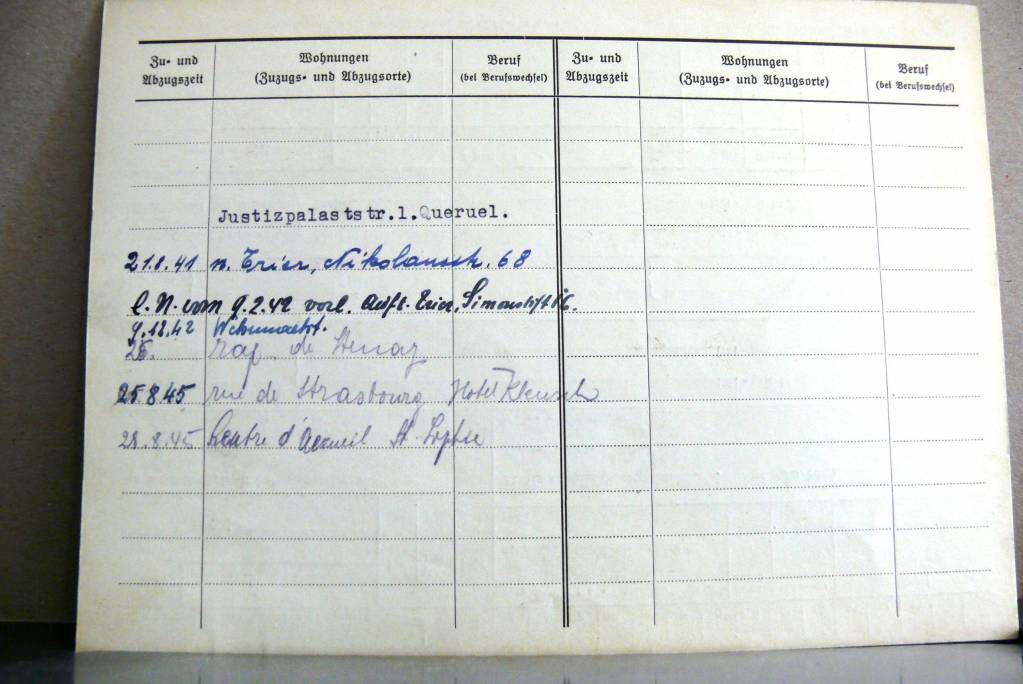 Zu- und Abzugszeit
Wohnungen
(Zuzugs- und Abzugsorte)
Beruf
(bei Berufswechsel)
Zu- und Abzugszeit
Wohnungen
(Zuzugs- und Abzugsorte)
Beruf
(bei Berufswechsel)
Justizpalaststr.1.Queruel.
21.8.41 n. Trier, Nikolausstr. 68
l. N. vom 9.2.42 vorl. Auft. Trier, Simeonstift
9.12.42 Wehrmacht.
de
25.8.45 rue de Strasbourg Hotel Kleusch
28.8.45 Centre d'Accueil St. Sophie